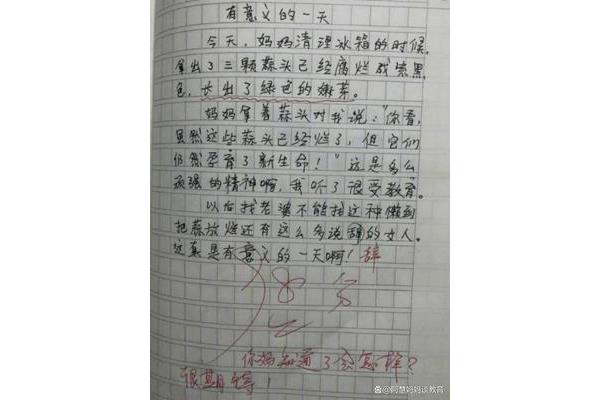 有意义的一天
今天，妈妈清理冰箱的时候，
拿出了三颗蒜头已经腐烂成紫黑
色，长出了绿色的嫩芽。
妈妈拿着蒜头对我说：“你看，
虽然这些蒜头已经烂了，但它们
仍然孕育了新生命！”这是多么
顽强的精神啊，我听了很受教育。
以后找老婆不能找这种懒到
把蒜放烂还有这么多说辞的女人。
这真是有意义的一天啊！辞
你妈知道了会怎样？
很期待！
@阿慧妈妈谈教育